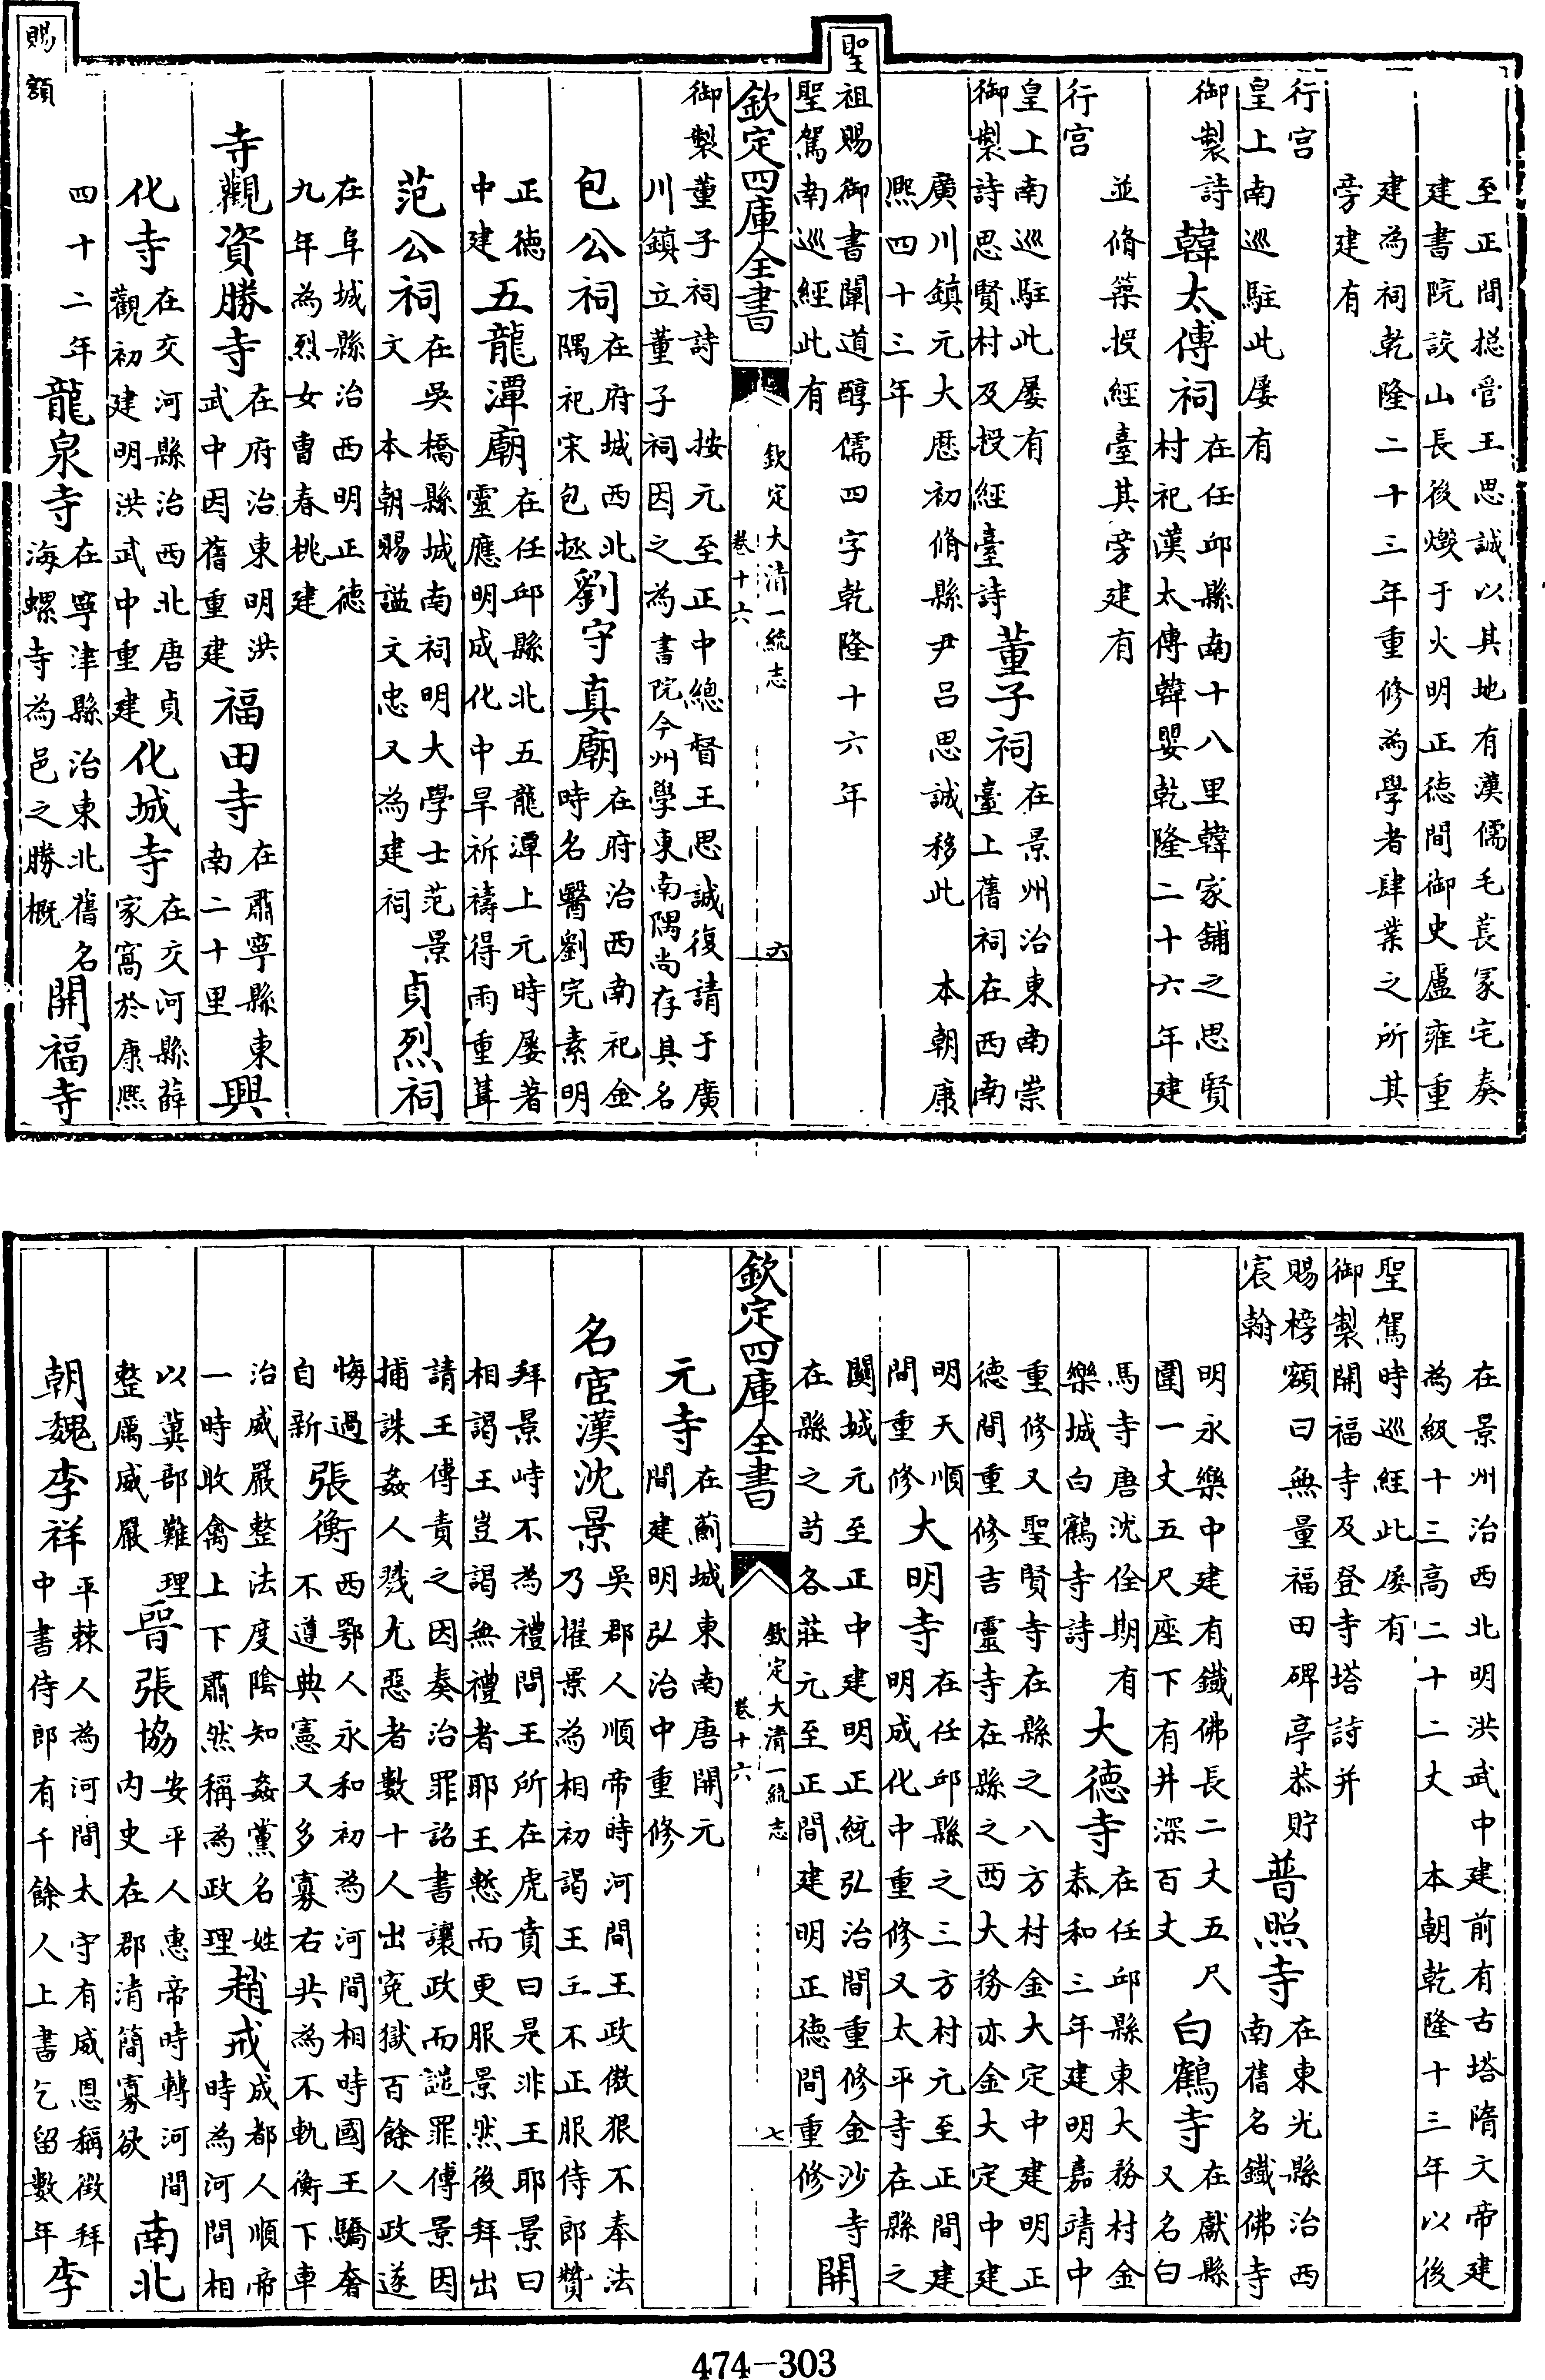 至正間摠管王思誠以其地有漢儒毛萇冢宅奏
建書院設山長後燬于火明正德間御史盧雍重
建為祠乾隆二十三年重修為學者肄業之所其
旁建有
行宫
皇上南巡駐此屡有
御製詩
韓太傅祠
在任邱縣南十八里韓家舖之思賢
村祀漢太傅韓嬰乾隆二十六年建
並脩築授經臺其旁建有
行宫
皇上南巡駐此屡有
御製詩思賢村及授經臺詩
董子祠
在景州治東南崇
臺上舊祠在西南
廣川鎮元大歴初脩縣尹吕思誠移此 本朝康
熙四十三年
聖祖賜御書闡道醇儒四字乾隆十六年
聖駕南巡經此有
欽定四庫全書
欽定大清一統志
卷十六
六
御製董子祠詩 按元至正中總督王思誠復請于廣
川鎮立董子祠因之為書院今州學東南隅尚存其名
包公祠
在府城西北
隅祀宋包拯
劉守真廟
在府治西南祀金
時名醫劉完素明
正德
中建
五龍潭廟
在任邱縣北五龍潭上元時屡著
靈應明成化中旱祈禱得雨重葺
范公祠
在吳橋縣城南祠明大學士范景
文 本朝賜謚文忠又為建祠
貞烈祠
在阜城縣治西明正德
九年為烈女曹春桃建
寺觀
資勝寺
在府治東明洪
武中因舊重建
福田寺
在肅寧縣東
南二十里
興
化寺
在交河縣治西北唐貞
觀初建明洪武中重建
化城寺
在交河縣薛
家窩於康熙
四十二年
賜額
龍泉寺
在寧津縣治東北舊名
海螺寺為邑之勝概
開福寺
在景州治西北明洪武中建前有古塔隋文帝建
為級十三高二十二丈 本朝乾隆十三年以後
聖駕時巡經此屡有
御製開福寺及登寺塔詩并
賜榜額曰無量福田碑亭恭貯
宸翰
普照寺
在東光縣治西
南舊名鐵佛寺
明永樂中建有鐵佛長二丈五尺
圍一丈五尺座下有井深百丈
白鶴寺
在獻縣
又名白
馬寺唐沈佺期有
樂城白鶴寺詩
大德寺
在任邱縣東大務村金
泰和三年建明嘉靖中
重修又聖賢寺在縣之八方村金大定中建明正
德間重修吉靈寺在縣之西大務亦金大定中建
明天順
間重修
大明寺
在任邱縣之三方村元至正間建
明成化中重修又太平寺在縣之
關城元至正中建明正統弘治間重修金沙寺
在縣之茍各莊元至正間建明正德間重修
開
欽定四庫全書
欽定大清一統志
卷十六
七
元寺
在薊城東南唐開元
間建明弘治中重修
名宦
漢
沈景
吳郡人順帝時河間王政傲狠不奉法
乃擢景為相初謁王王不正服侍郎贊
拜景峙不為禮問王所在虎賁曰是非王耶景曰
相謁王豈謁無禮者耶王慙而更服景然後拜出
請王傅責之因奏治罪詔書讓政而詰罪傅景因
捕誅姦人戮尤惡者數十人出寃獄百餘人政遂
悔過
自新
張衡
西鄂人永和初為河間相時國王驕奢
不遵典憲又多寡右共為不軌衡下車
治威嚴整法度陰知姦黨名姓
一時收禽上下肅然稱為政理
趙戒
成都人順帝
時為河間相
以冀部難理
整厲威嚴
晉
張協
安平人惠帝時轉河間
内史在郡清簡寡欲
南北
朝
魏
李祥
平棘人為河間太守有威恩稱徴拜
中書侍郎有千餘人上書乞留數年
李
474-303